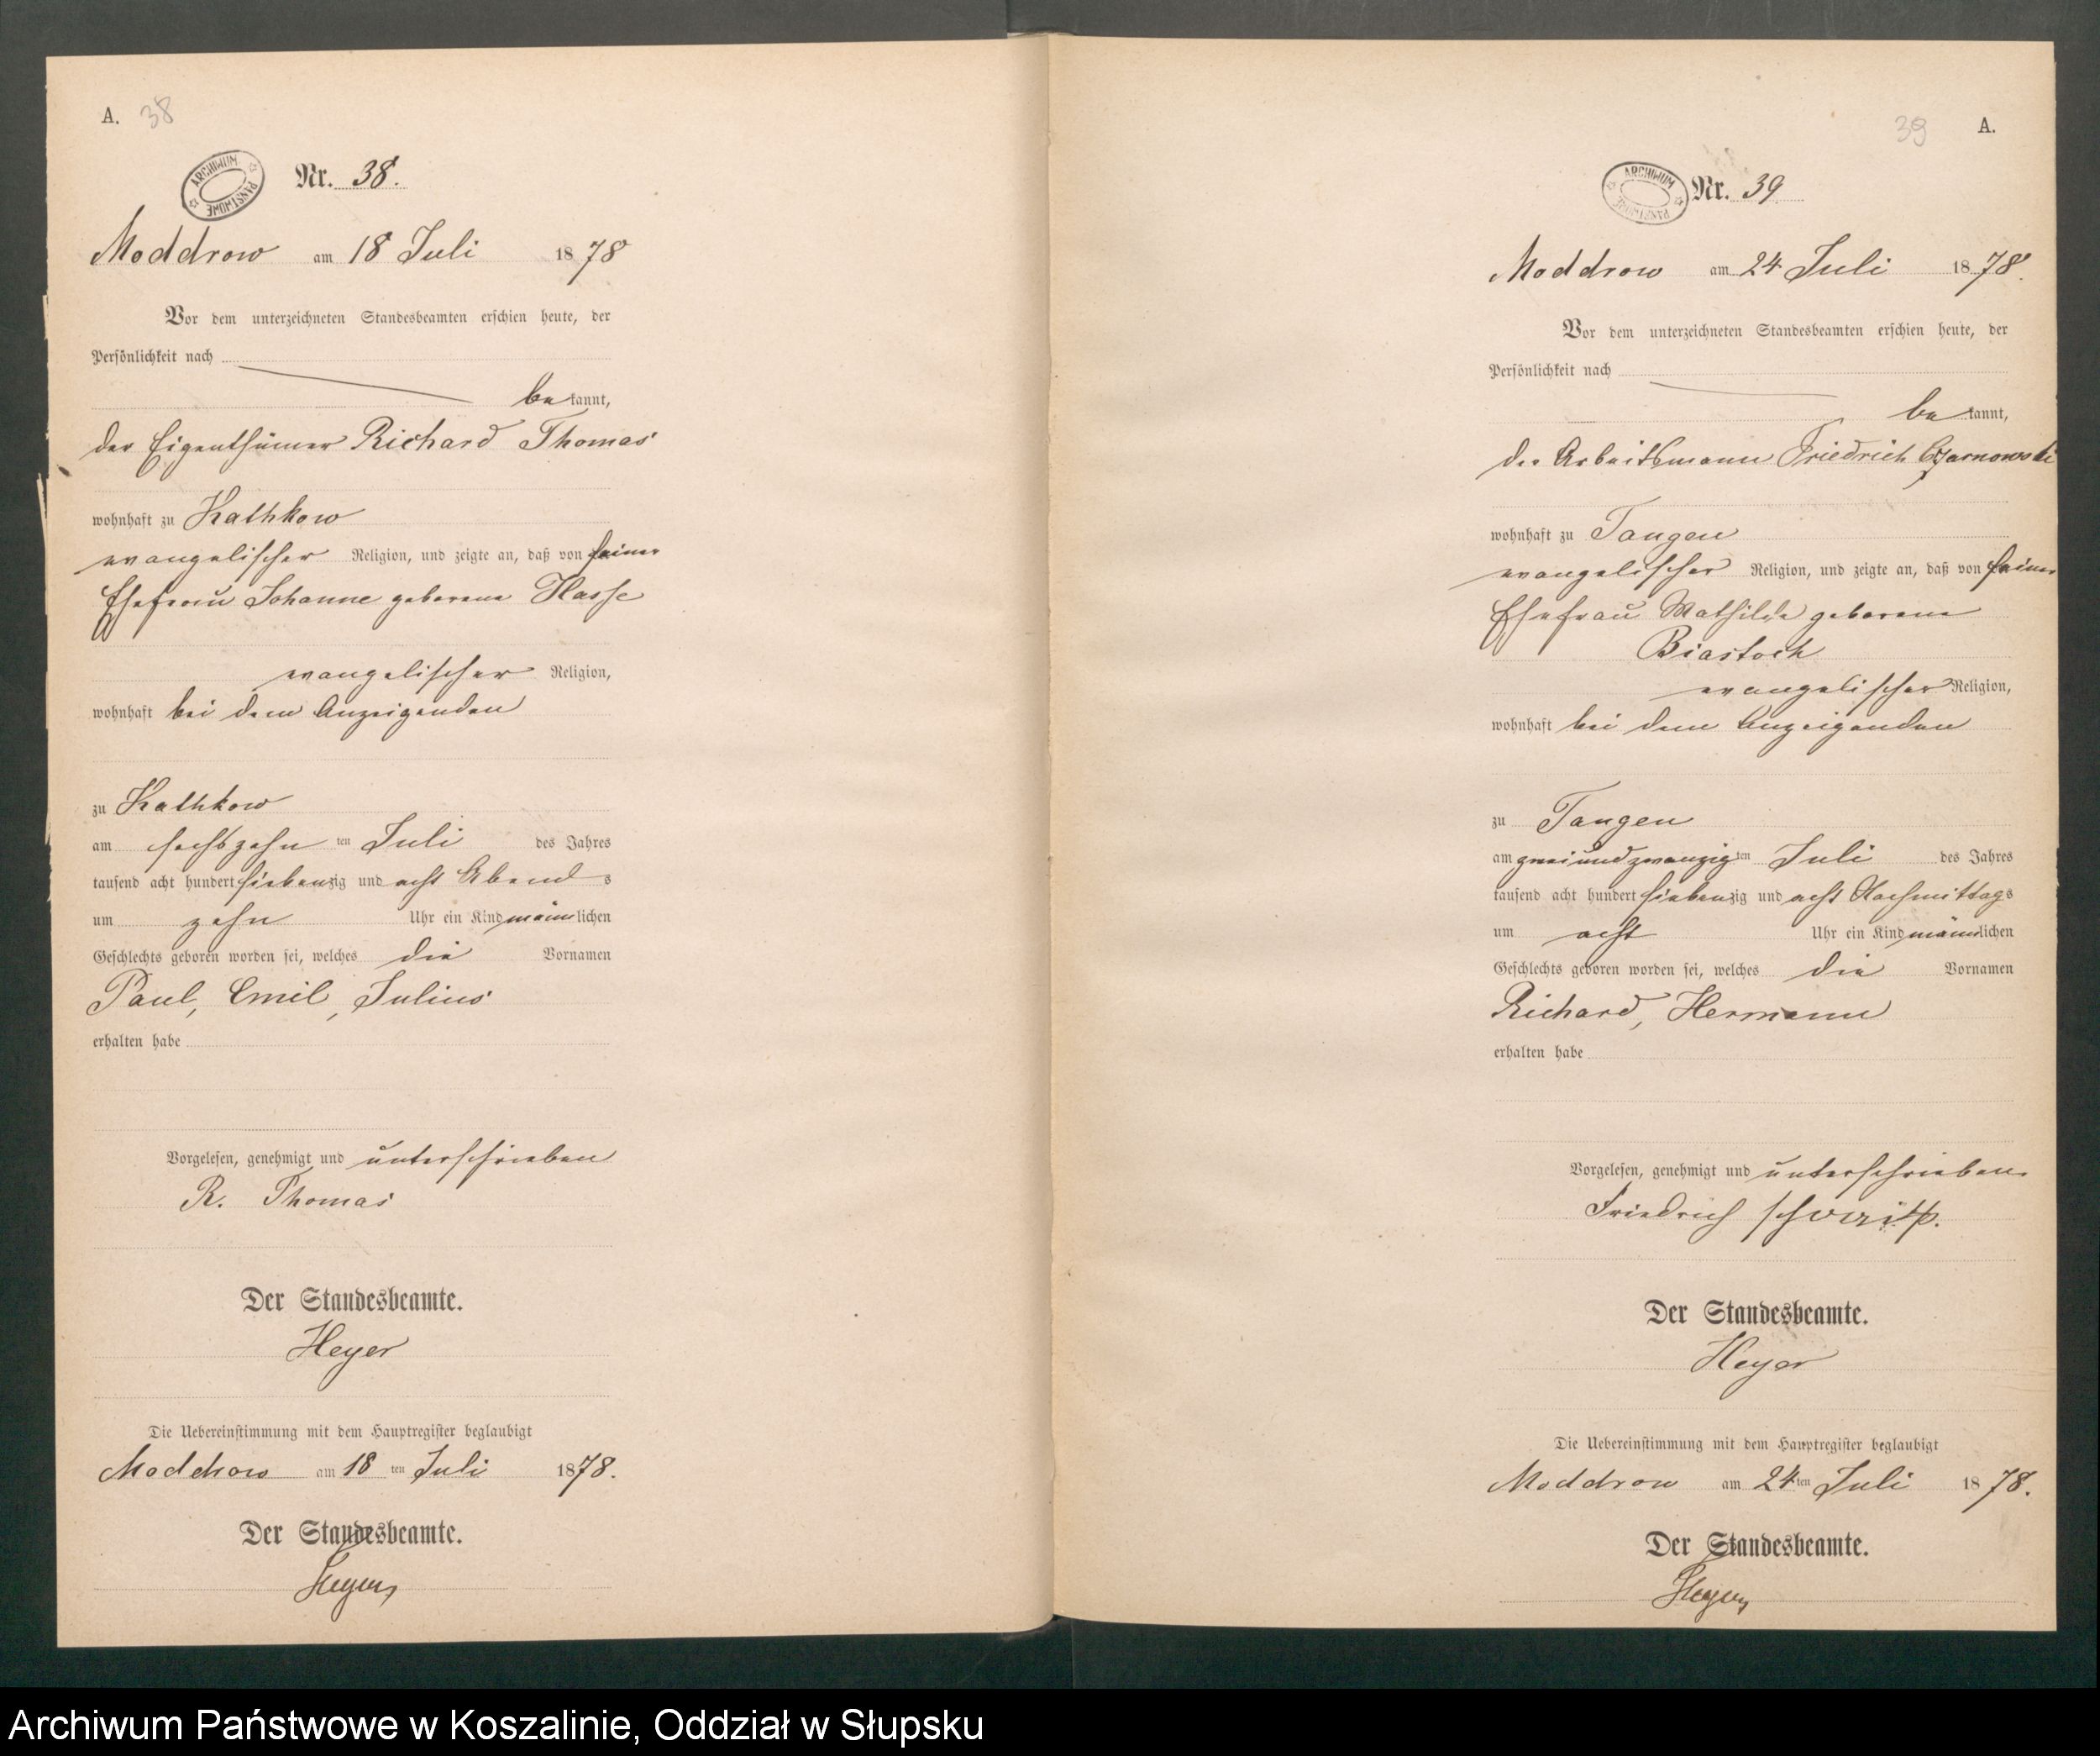 A. 38
ARCHIWUM PAŃSTWOWE
Nr. 38.
Moddrow am 18 Juli 1878
Vor dem unterzeichneten Standesbeamten erschien heute, der
Persönlichkeit nach
bekannt,
der Eigenthümer Richard Thomas
wohnhaft zu Kathkow
evangelischer Religion, und zeigte an, daß von seiner
Ehefrau Johanne geborene Hasse
evangelischer Religion,
wohnhaft bei dem Anzeigenden
zu Kathkow
am sechszehn ten Juli des Jahres
tausend acht hundert siebenzig und acht Abends
um zehn Uhr ein Kind männlichen
Geschlechts geboren worden sei, welches die Vornamen
Paul, Emil, Julius
erhalten habe
Vorgelesen, genehmigt und unterschrieben
R. Thomas
Der Standesbeamte.
Heyer
Die Uebereinstimmung mit dem Hauptregister beglaubigt
Moddrow am 18 ten Juli 1878.
Der Standesbeamte.
Heyer
39 A.
ARCHIWUM PAŃSTWOWE
Nr. 39
Moddrow am 24 Juli 1878.
Vor dem unterzeichneten Standesbeamten erschien heute, der
Persönlichkeit nach
bekannt,
der Arbeitsmann Friedrich Czarnowski
wohnhaft zu Tangen
evangelischer Religion, und zeigte an, daß von seiner
Ehefrau Mathilde geborene
Biastoch
evangelischer Religion,
wohnhaft bei dem Anzeigenden
zu Tangen
am zweiundzwanzigten Juli des Jahres
tausend acht hundert siebenzig und acht Nachmittags
um acht Uhr ein Kind männlichen
Geschlechts geboren worden sei, welches die Vornamen
Richard, Hermann
erhalten habe
Vorgelesen, genehmigt und unterschrieben
Friedrich
Der Standesbeamte.
Heyer
Die Uebereinstimmung mit dem Hauptregister beglaubigt
Moddrow am 24ten Juli 1878.
Der Standesbeamte.
Heyer
Archiwum Państwowe w Koszalinie, Oddział w Słupsku